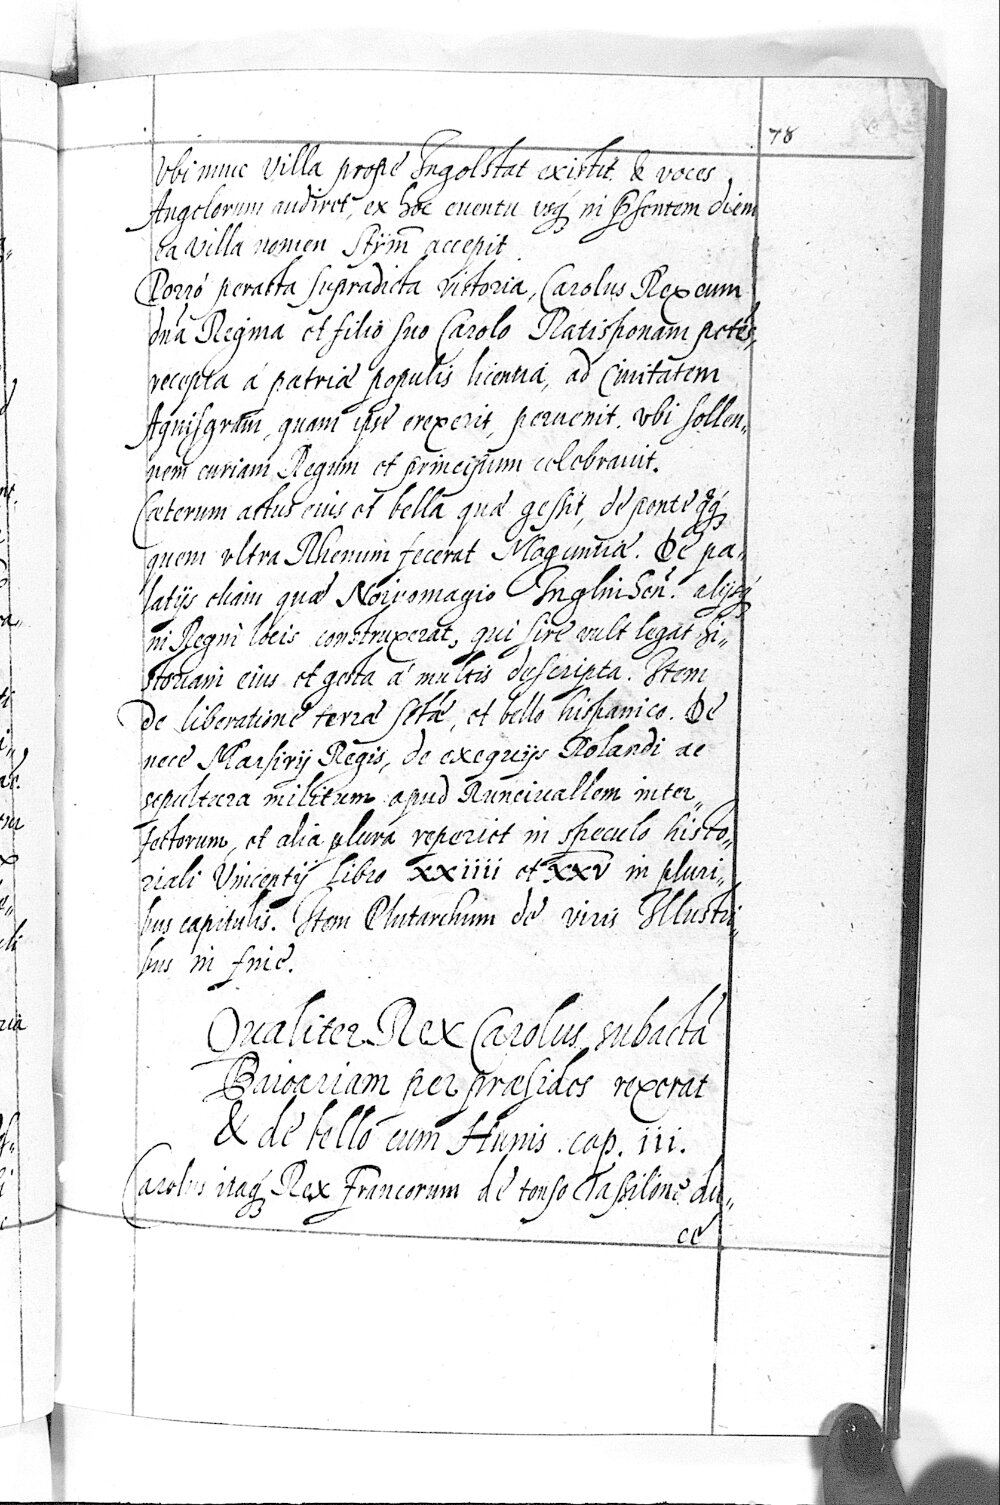 78
Vbi nunc Villa prope Ingolstat existit, & voces
Angelorum audiret, ex hoc euentu vsq; in p̃sentem diem
ea Villa nomen Stÿm̃ accepit
Porró peracta supradicta victoria, Carolus Rex cum
dña Regina et filio suo Carolo Ratisponam petēs,
recepta á patriæ populis licentia, ad Ciuitatem
Aquisgranũ, quam ipse erexerit, peruenit. vbi sollen„
nem curiam Regum et principum celebrauit.
Cæterum actus eius et bella quæ gessit, de ponte q̃q́
quem vltra Rhenum fecerat Moguntiæ. De pa„
latijs etiam quæ Noiromagio Inglnihen̄. alijsq́
in Regni locis construxerat, qui sire vult legat hi„
storiam eius et gesta á multis descripta. Item
de liberatione terræ sctæ, et bello hispanico. De
nece Marsirij Regis, de exequijs Rolandi ac
sepultura militum apud Runciuallem inter„
fectorum, et alia plura reperiet in speculo histo„
riali Vincentij Libro xxiiii et xxv in pluri„
bus capitulis. Item Plutarchum de viris Illustri„
bus in fine.
Qualiter Rex Carolus subacta
Baioariam per præsides rexerat
& de bello cum Hunis. cap. iii.
Carolus itaq́ Rex Francorum de tonso Tassilone du„
ce